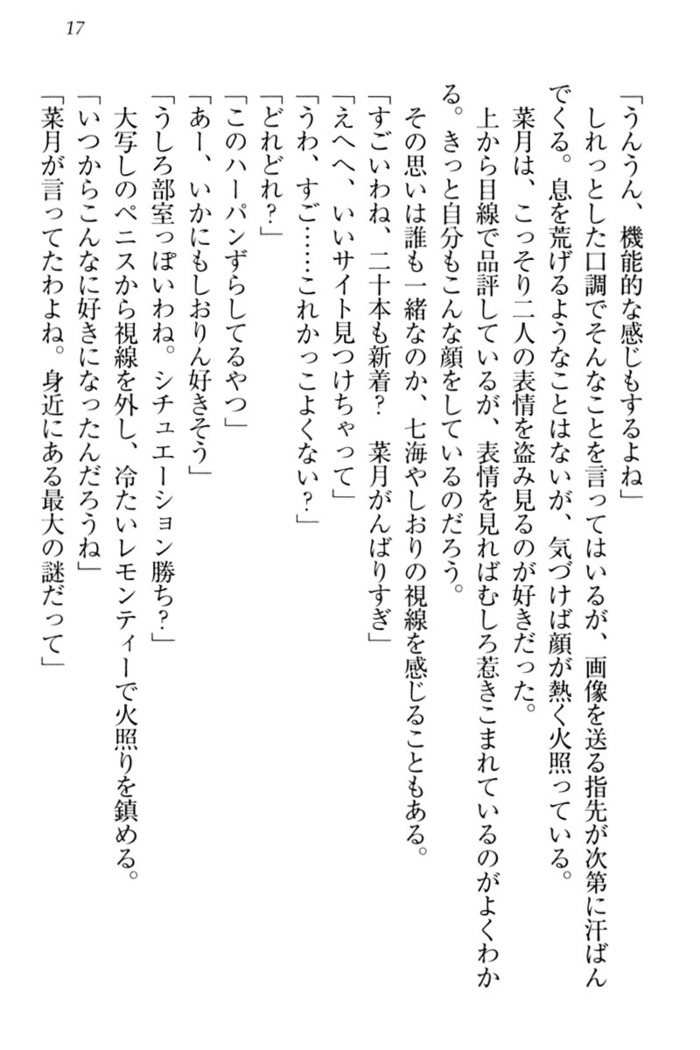 17
「うんうん、機能的な感じもするよね」
しれっとした口調でそんなことを言ってはいるが、画像を送る指先が次第に汗ばん
でくる。息を荒げるようなことはないが、気づけば顔が熱く火照っている。
菜月は、こっそり二人の表情を盗み見るのが好きだった。
上から目線で品評しているが、表情を見ればむしろ惹きこまれているのがよくわか
る。きっと自分もこんな顔をしているのだろう。
その思いは誰も一緒なのか、七海やしおりの視線を感じることもある。
「すごいわね、二十本も新着？　菜月がんばりすぎ」
「えへへ、いいサイト見つけちゃって」
「うわ、すご……これかっこよくない？」
「どれどれ？」
「このハーパンずらしてるやつ」
「あー、いかにもしおりん好きそう」
「うしろ部室っぽいわね。シチュエーション勝ち？」
大写しのペニスから視線を外し、冷たいレモンティーで火照りを鎮める。
「いつからこんなに好きになったんだろうね」
「菜月が言ってたわよね。身近にある最大の謎だって」